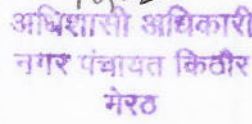 अधिशासी अधिकारी
नगर पंचायत किठौर
मेरठ